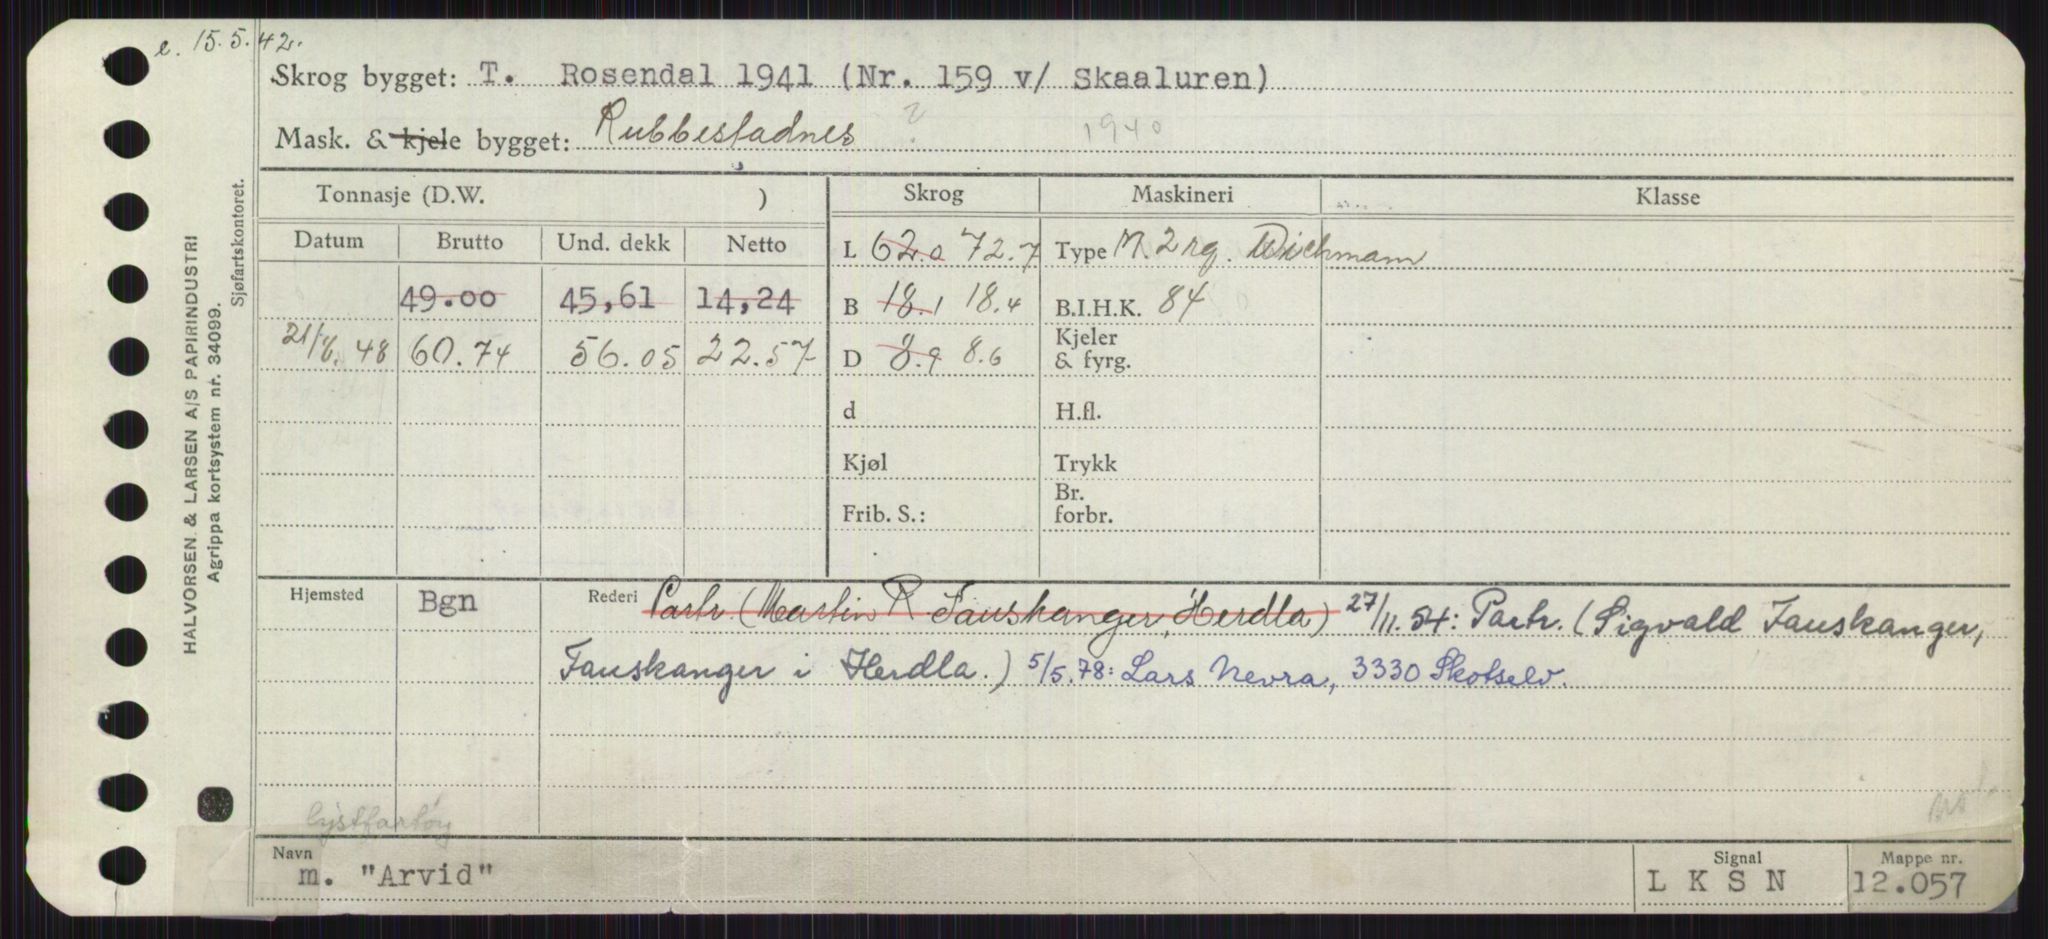 e. 15.5.42.
Skrog bygget: T. Rosendal 1941 (Nr. 159 v/ Skaaluren)
Mask. & kjele bygget: Rubbestadnes ? 1940
Tonnasje (D.W. ) Skrog Maskineri Klasse
Datum Brutto Und. dekk Netto L 62.0 72.7 Type M. 2 rg. Wichmann
49.00 45,61 14,24 B 18.1 18.4 B.I.H.K. 84
21/8.48 60.74 56.05 22.57 D 8.9 8.6 Kjeler & fyrg.
d H.fl.
Kjøl Trykk
Frib. S.: Br. forbr.
Hjemsted Bgn Rederi Partr. (Martin R Fauskanger, Herdla) 27/11.54: Partr. (Sigvald Fauskanger,
Fauskanger i Herdla.) 5/5.78: Lars Nevra, 3330 Skotselv.
lystfartøy
Navn Signal Mappe nr.
m. "Arvid" L K S N 12.057
HALVORSEN & LARSEN A/S PAPIRINDUSTRI
Agrippa kortsystem nr. 34099.
Sjøfartskontoret.